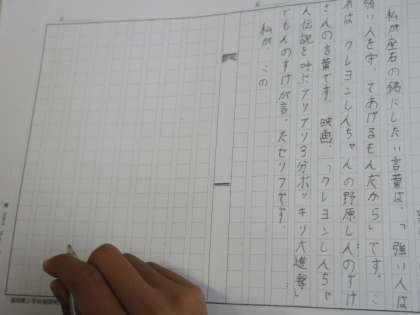 私が座右の銘にしたい言葉は、「強い人は
い人を守ってあげるもんだから」です。こ
れは、クレヨンしんちゃんの野原しんのすけ
さんの言葉です。映画「クレヨンしんちゃ
ん伝説を呼ぶブリブリ3分ポッキリ大進撃」
でしんのすけが言ったセリフです。
私が、この